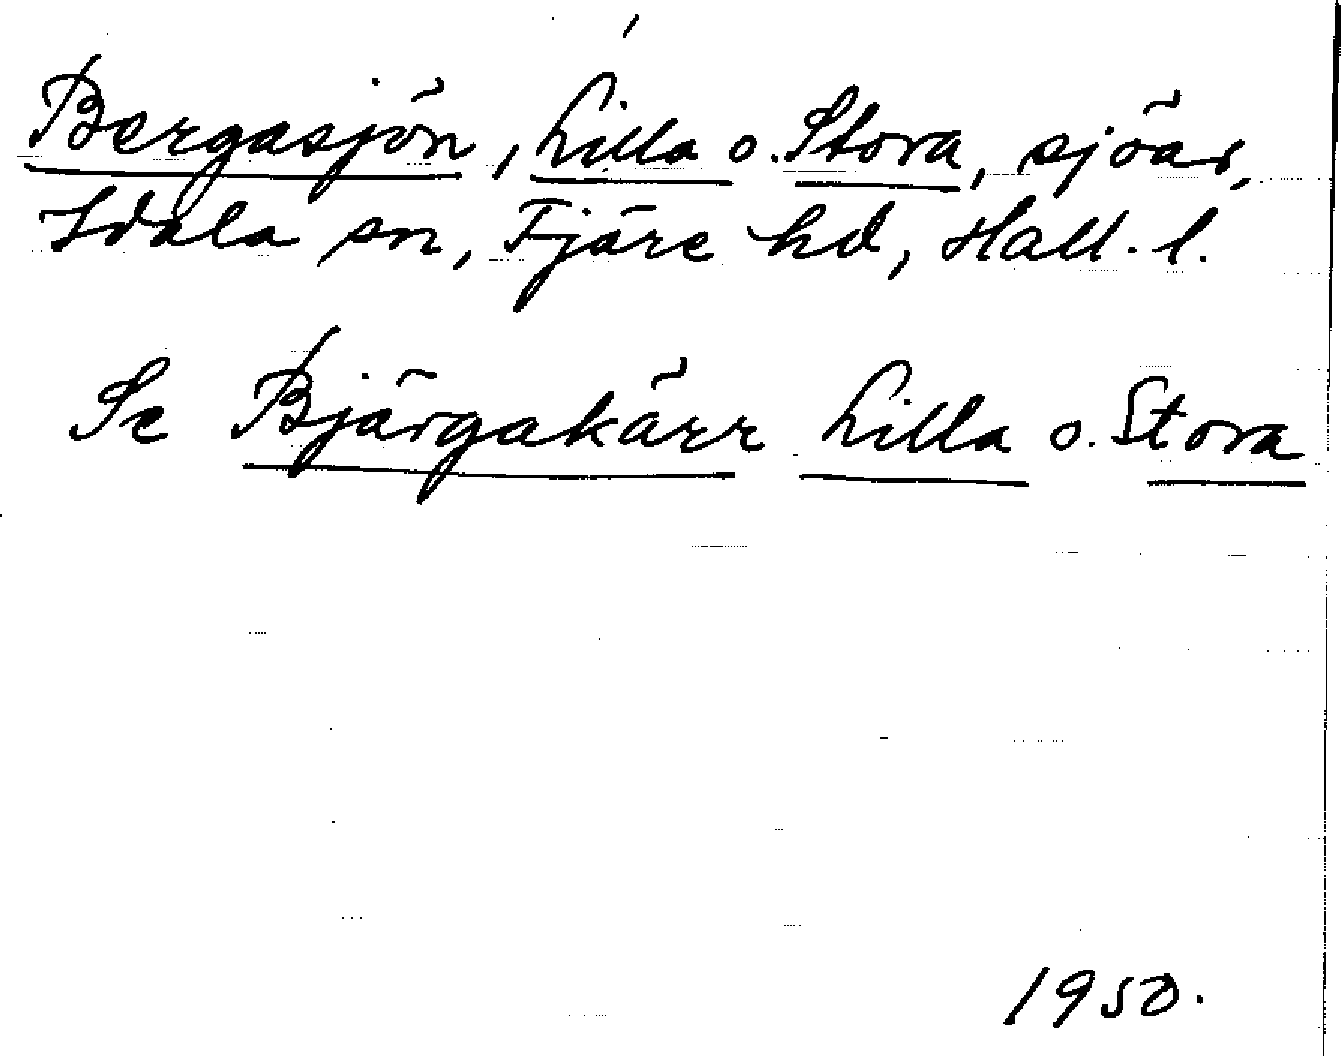 Bergasjön, Lilla o. Stora, sjöar,
Idala sn, Fjäre hd, Hall. l.
Se Bjärgakärr Lilla o. Stora
1950.